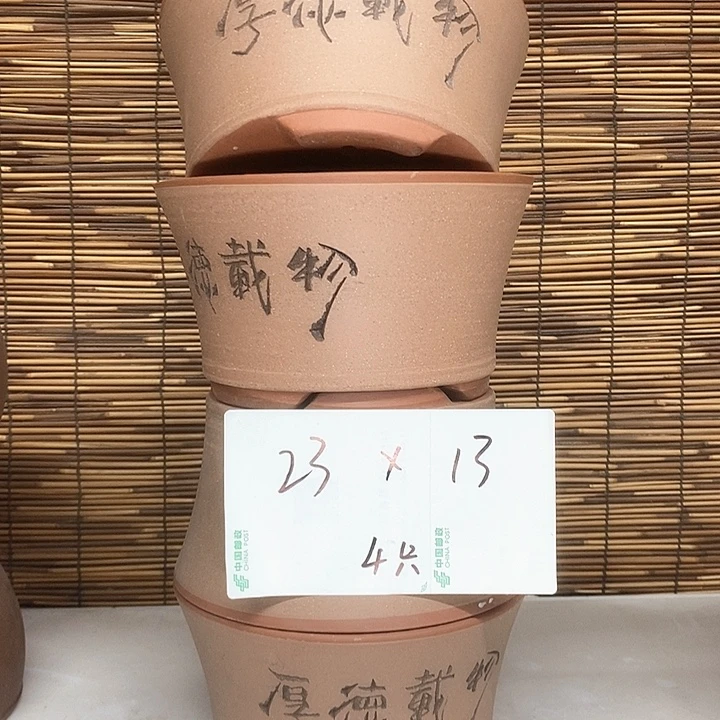 厚德載物
德載物
23 x 13
4只
中国邮政
CHINA POST
中国邮政
CHINA POST
厚德載物